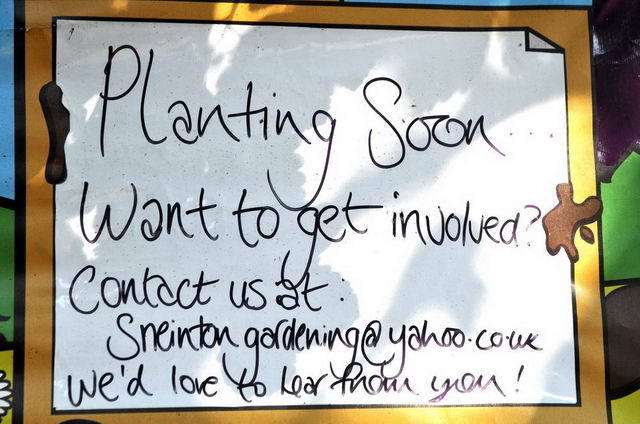 Planting Soon....
Want to get involved?
Contact us at:
Sneintongardening@yahoo.co.uk
We'd love to hear from you!